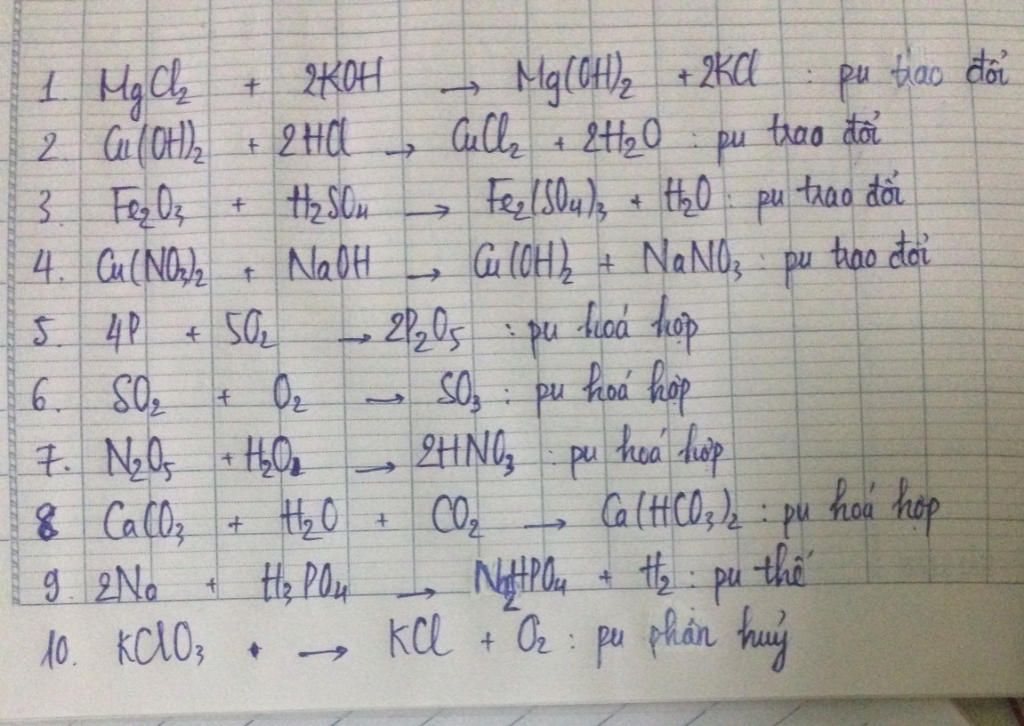 1. MgCl₂ + 2KOH → Mg(OH)₂ + 2KCl : pu trao đổi
2. Cu(OH)₂ + 2HCl → CuCl₂ + 2H₂O : pu trao đổi
3. Fe₂O₃ + H₂SO₄ → Fe₂(SO₄)₃ + H₂O : pu trao đổi
4. Cu(NO₃)₂ + NaOH → Cu(OH)₂ + NaNO₃ : pu trao đổi
5. 4P + 5O₂ → 2P₂O₅ : pu hoá hợp
6. SO₂ + O₂ → SO₃ : pu hoá hợp
7. N₂O₅ + H₂O → 2HNO₃ : pu hoá hợp
8 CaCO₃ + H₂O + CO₂ → Ca(HCO₃)₂ : pu hoá hợp
9. 2Na + H₃PO₄ → + H₂ : pu thế
10. KClO₃ → KCl + O₂ : pu phân huỷ